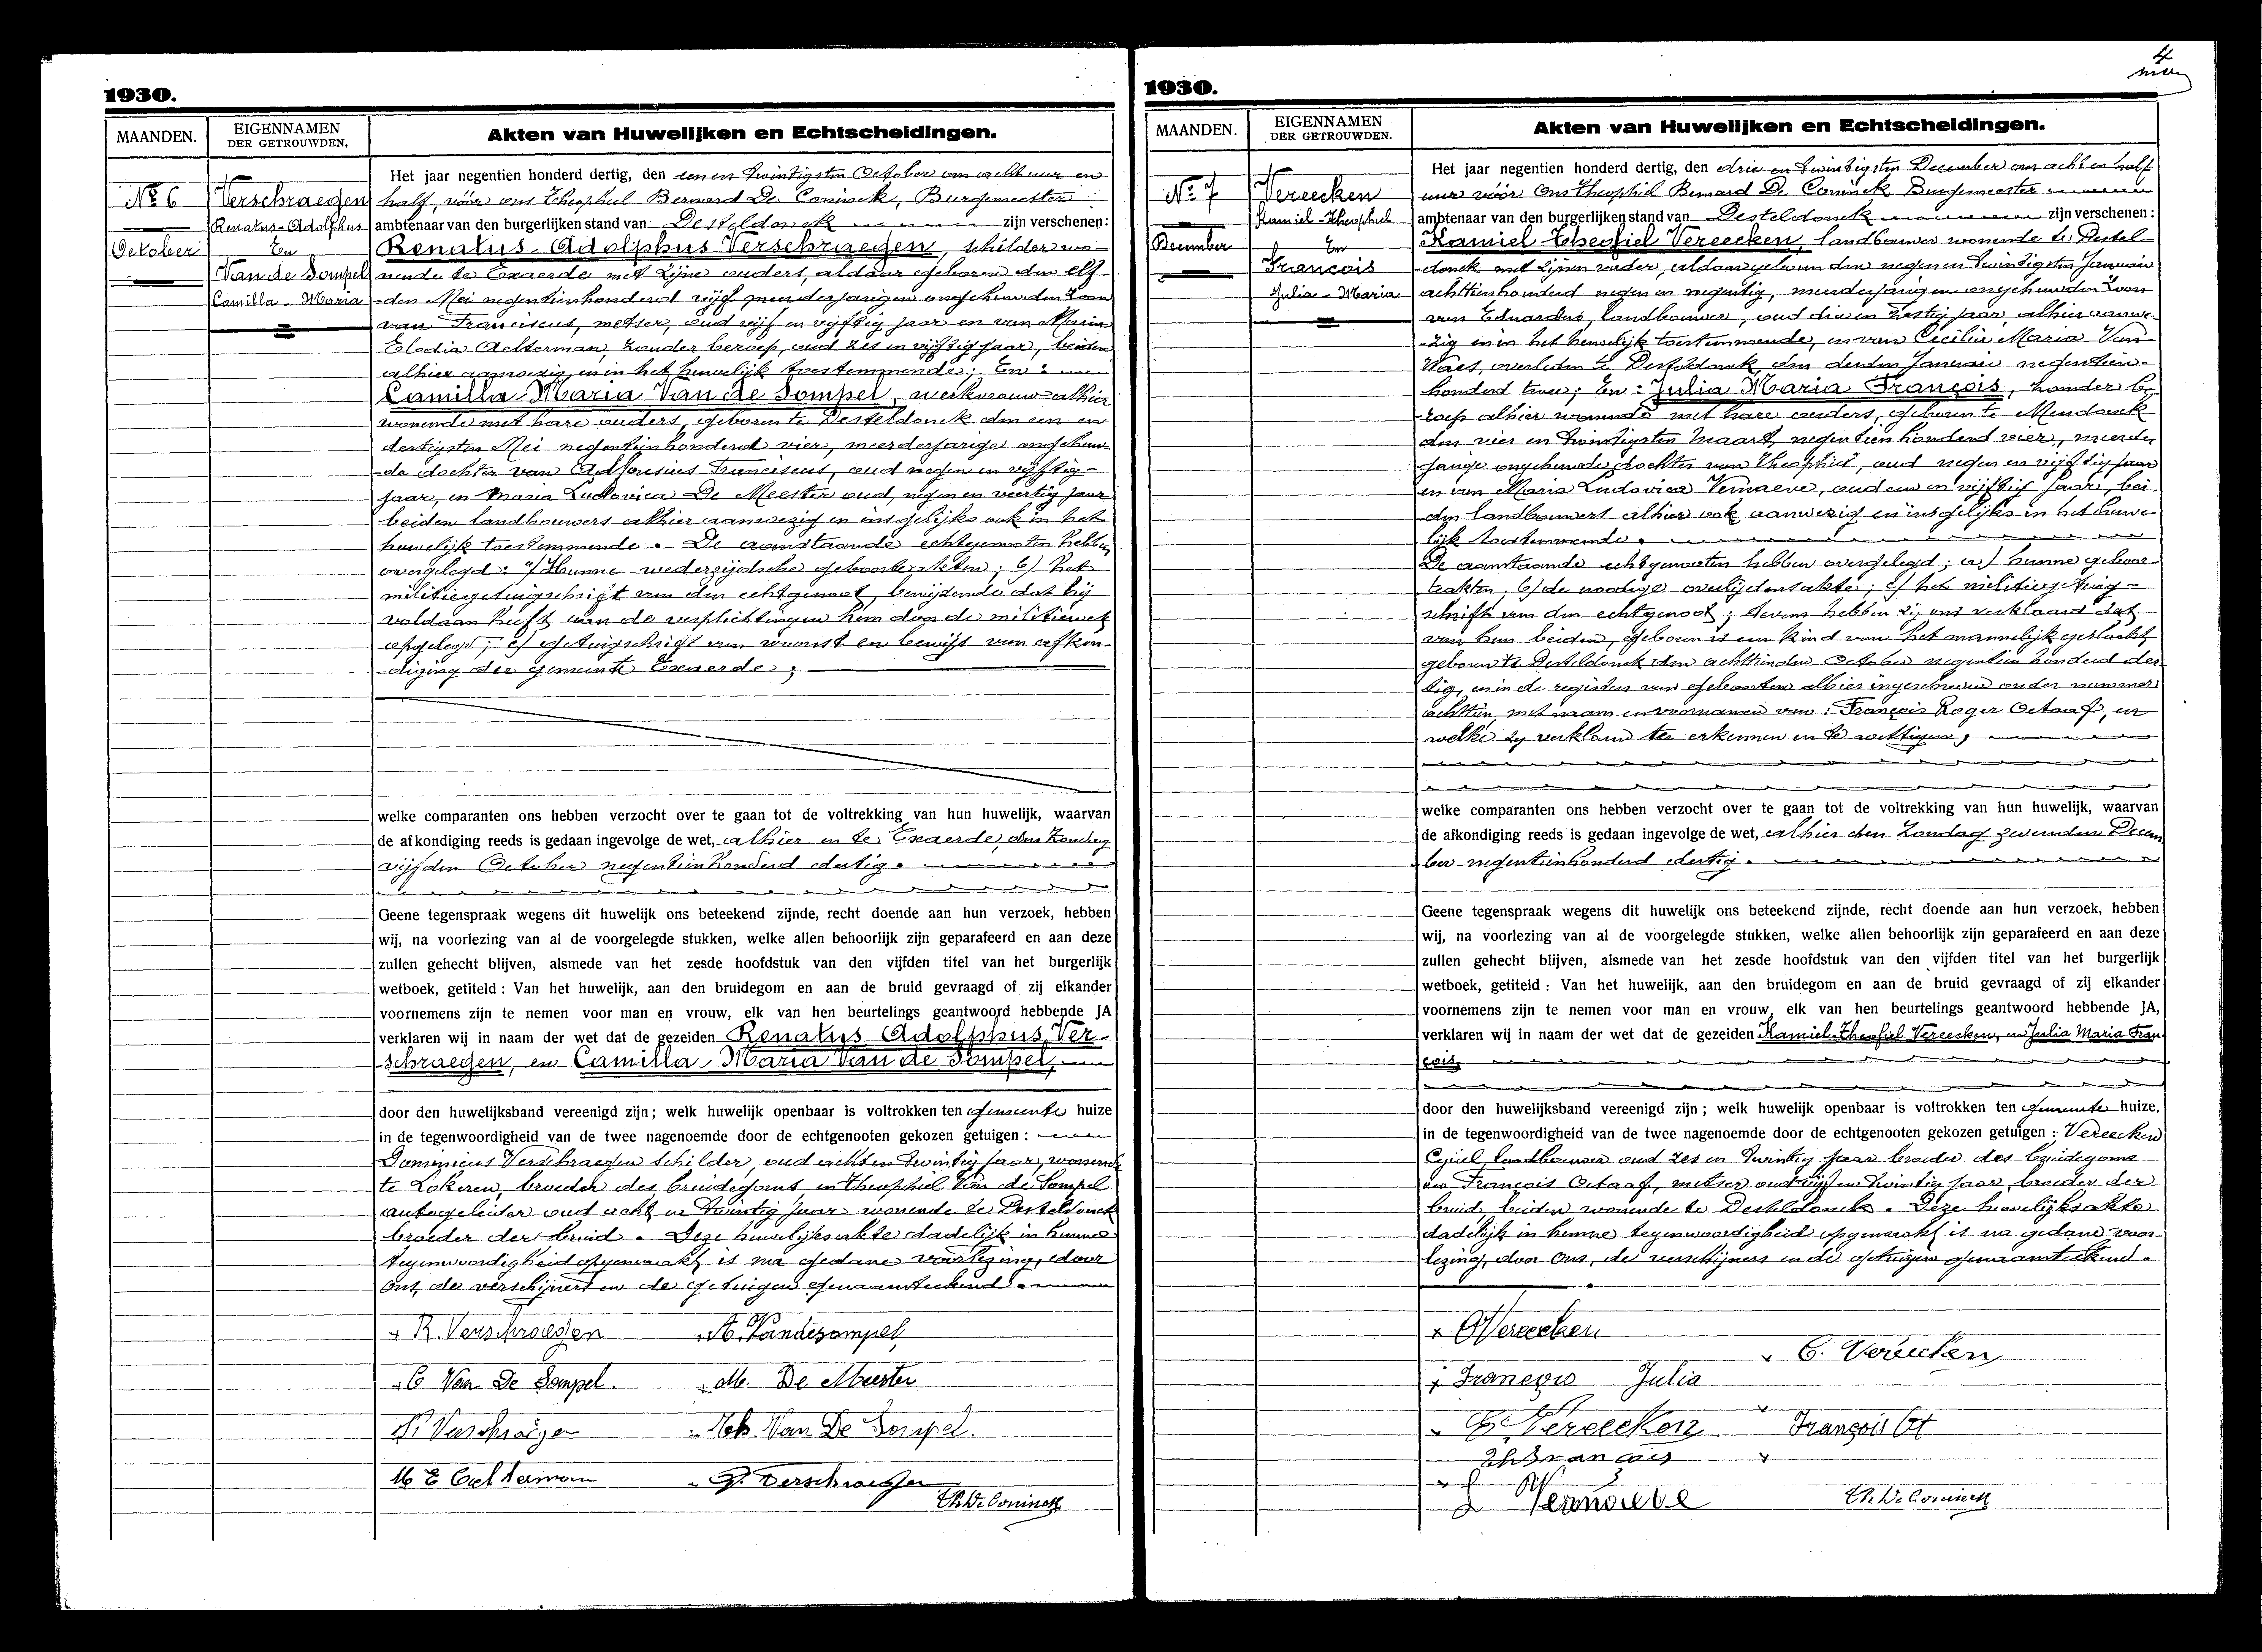 1930.
MAANDEN.
EIGENNAMEN
DER GETROUWDEN.
Akten van Huwelijken en Echtscheidingen.
No 6
October
Verschraegen
Renatus-Adolphus
En
Van de Sompel
Camilla-Maria
Het jaar negentien honderd dertig, den eenen twintigsten October om acht uur en
half, vóór ons Theophiel Bernard De Coninck, Burgemeester
ambtenaar van den burgerlijken stand van Desteldonck zijn verschenen:
Renatus-Adolphus Verschraegen, schilder wo-
nende te Exaerde met zijne ouders, aldaar geboren den elf-
den Mei negentienhonderd vijf meerderjarigen ongehuwden zoon
van Franciscus, metser, oud vijf en vijftig jaar en van Maria
Elodia Aelterman, zonder beroep, oud zes en vijftig jaar, beiden
alhier aanwezig en in het huwelijk toestemmende; En:
Camilla-Maria Van de Sompel, werkvrouw alhier
wonende met hare ouders, geboren te Desteldonck den een en
dertigsten Mei negentienhonderd vier, meerderjarige ongehuw-
de dochter van Alfonsius Franciscus, oud negen en vijftig
jaar, en Maria Ludovica De Meester oud, negen en veertig jaar
beiden landbouwers alhier aanwezig en insgelijks ook in het
huwelijk toestemmende. De aanstaande echtgenooten hebben
overgelegd: a/ Hunne wederzijdsche geboorteakten; b) het
militiegetuigschrift van den echtgenoot, bewijzende dat hij
voldaan heeft aan de verplichtingen hem door de militiewet
opgelegd; c) getuigschrift van woonst en bewijs van afkon-
diging der gemeente Exaerde;
welke comparanten ons hebben verzocht over te gaan tot de voltrekking van hun huwelijk, waarvan
de afkondiging reeds is gedaan ingevolge de wet, alhier en te Exaerde, den Zondag
vijfden October negentienhonderd dertig.
Geene tegenspraak wegens dit huwelijk ons beteekend zijnde, recht doende aan hun verzoek, hebben
wij, na voorlezing van al de voorgelegde stukken, welke allen behoorlijk zijn geparafeerd en aan deze
zullen gehecht blijven, alsmede van het zesde hoofdstuk van den vijfden titel van het burgerlijk
wetboek, getiteld : Van het huwelijk, aan den bruidegom en aan de bruid gevraagd of zij elkander
voornemens zijn te nemen voor man en vrouw, elk van hen beurtelings geantwoord hebbende JA
verklaren wij in naam der wet dat de gezeiden Renatus Adolphus Ver-
schraegen, en Camilla-Maria Van de Sompel,
door den huwelijksband vereenigd zijn; welk huwelijk openbaar is voltrokken ten gemeente huize
in de tegenwoordigheid van de twee nagenoemde door de echtgenooten gekozen getuigen :
Dominicus Verschraegen schilder, oud acht en twintig jaar, wonende
te Lokeren, broeder des bruidegoms en Theophiel Van de Sompel
autogeleider oud acht en twintig jaar wonende te Desteldonck
broeder der bruid. Deze huwelijksakte dadelijk in hunne
tegenwoordigheid opgemaakt is na gedane voorlezing, door
ons, de verschijners en de getuigen genaamteekend.
R. Verschraegen
A. Vandesompel
C Van De Sompel.
M. De Meester
Fr Verschraegen
Th. Van De Sompel.
M E Aelterman
D. Verschraegen
Th De Coninck
4
1930.
MAANDEN.
EIGENNAMEN
DER GETROUWDEN.
Akten van Huwelijken en Echtscheidingen.
No 7
December
Vereecken
Kamiel-Theophiel
En
François
Julia-Maria
Het jaar negentien honderd dertig, den drie en twintigsten December om acht en half
uur vóór Ons Theophiel Bernard De Coninck Burgemeester
ambtenaar van den burgerlijken stand van Desteldonck zijn verschenen:
Kamiel-Theofiel Vereecken, landbouwer wonende te Destel-
donck met zijnen vader, aldaar geboren den negen en twintigsten Januari
achttienhonderd negen en negentig, meerderjarigen ongehuwden zoon
van Eduardus, landbouwer, oud drie en zestig jaar, alhier aanwe-
zig en in het huwelijk toestemmende, en van Cecilia Maria Van
Waes, overleden te Desteldonck den derden Januari negentien-
honderd twee; En: Julia Maria François, zonder be-
roep alhier wonende met hare ouders, geboren te Mendonck
den vier en twintigsten Maart negentien honderd vier, meerder
jarige ongehuwde dochter van Theophiel, oud negen en vijftig jaar
en van Maria Ludovica Vernaeve, oud een en vijftig jaar, bei-
den landbouwers alhier ook aanwezig en insgelijks in het huwe-
lijk toestemmende.
De aanstaande echtgenooten hebben overgelegd; a) hunne geboor-
teakten, b) de noodige overlijdensakte; c) het militiegetuig-
schrift van den echtgenoot; tevens hebben zij ons verklaard dat
van hun beiden, geboren is een kind van het mannelijk geslacht
geboren te Desteldonck den achttienden October negentien honderd der-
tig, en in de registers van geboorten alhier ingeschreven onder nummer
achttien, met naam en voornamen van: François Roger Octaaf, en
welke zij verklaren te erkennen en te wettigen,
welke comparanten ons hebben verzocht over te gaan tot de voltrekking van hun huwelijk, waarvan
de afkondiging reeds is gedaan ingevolge de wet, alhier den Zondag zevenden Decem
ber negentienhonderd dertig.
Geene tegenspraak wegens dit huwelijk ons beteekend zijnde, recht doende aan hun verzoek, hebben
wij, na voorlezing van al de voorgelegde stukken, welke allen behoorlijk zijn geparafeerd en aan deze
zullen gehecht blijven, alsmede van het zesde hoofdstuk van den vijfden titel van het burgerlijk
wetboek, getiteld : Van het huwelijk, aan den bruidegom en aan de bruid gevraagd of zij elkander
voornemens zijn te nemen voor man en vrouw, elk van hen beurtelings geantwoord hebbende JA,
verklaren wij in naam der wet dat de gezeiden Kamiel-Theofiel Vereecken, en Julia Maria Fran
çois,
door den huwelijksband vereenigd zijn; welk huwelijk openbaar is voltrokken ten gemeente huize,
in de tegenwoordigheid van de twee nagenoemde door de echtgenooten gekozen getuigen : Vereecken
Cyriel, landbouwer oud zes en twintig jaar broeder des bruidegoms
en François Octaaf, metser oud vijf en twintig jaar, broeder der
bruid, beiden wonende te Desteldonck. Deze huwelijksakte
dadelijk in hunne tegenwoordigheid opgemaakt is na gedane voor-
lezing, door Ons, de verschijners en de getuigen genaamteekend.
Vereecken
C. Vereecken
François Julia
E. Vereecken
François Oct
Th François
Vernaeve
Th De Coninck